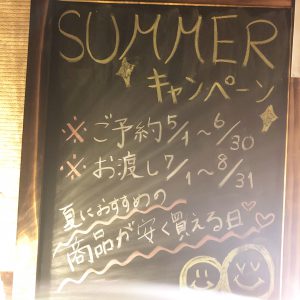 SUMMER
キャンペーン
※ご予約5/1～6/30
※お渡し7/1～8/31
夏におすすめの
商品が安く買える日♡♡